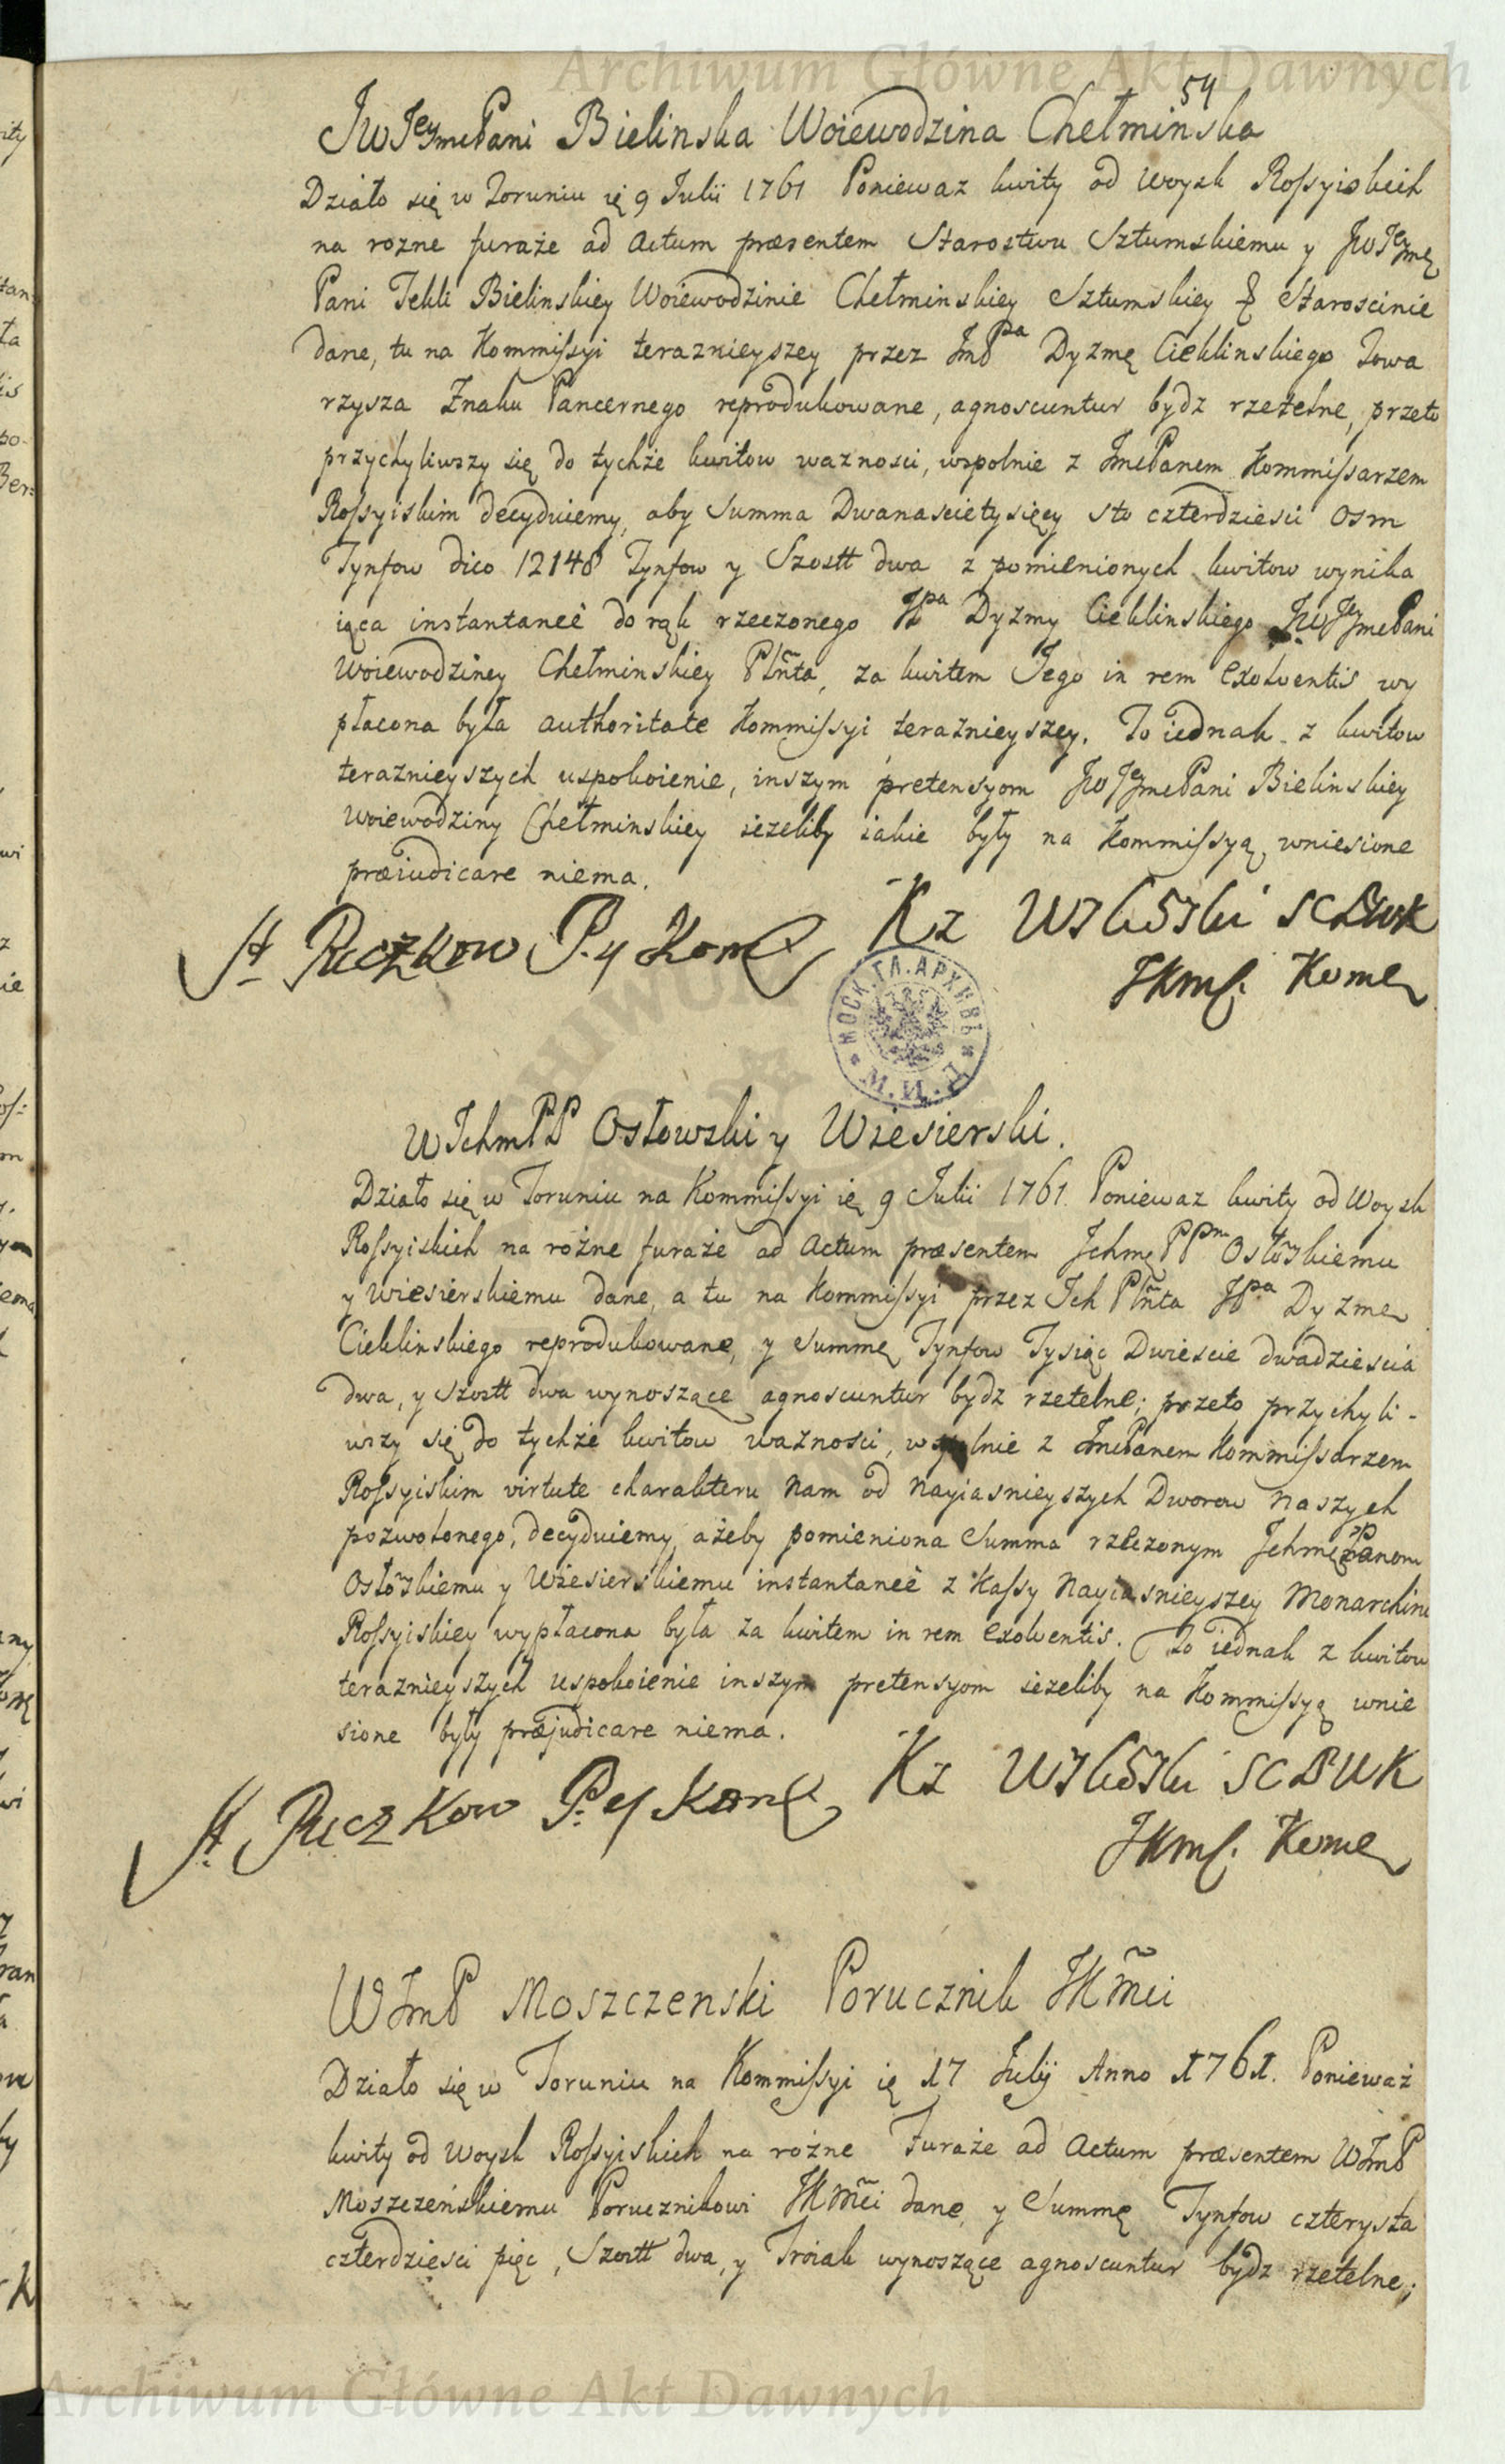 Archiwum Główne Akt Dawnych
54
JWJeymcPani Bielinska Woiewodzina Chełminska
Działo się w Toruniu ię 9 Julii 1761 Poniewaz kwity od woysk Rossyiskich
na rozne furaże ad Actum præsentem Starostwu Sztumskiemu y JWJeymę
Pani Tekli Bielinskiey Woiewodzinie Chełminskiey Sztumskiey & Starościnie
dane, tu na Kommissyi teraznieyszey przez JmP pa Dyzmę Cieklinskiego Towa
rzysza Znaku Pancernego reprodukowane, agnoscuntur bydz rzetelne, przeto
przychyliwszy się do tychże kwitow wazności, wspolnie z JmcPanem Kommissarzem
Rossyiskim decyduiemy, aby Summa Dwanascietysięcy sto czterdziesci osm
Tynfow dico 12148 Tynfow y Szostt dwa z pomienionych kwitow wynika
iąca instantaneè do rąk rzeczonego JP pa Dyzmy Cieklinskiego JWJeymcPani
Woiewodziney Chełminskiey Plñta, za kwitem Jego in rem exolventis wy
płacona była authoritate Kommissyi teraznieyszey. To iednak z kwitow
teraznieyszych uspokoienie, inszym pretensyom JWJeymcPani Bielinskiey
Woiewodziny Chełminskiey ieżeliby iakie były na Kommissyą wniesione
præiudicare niema.
A Puczkow P. y Kom
Kz
SCBWK
JKmści Kome
МОСК. ГЛ. АРХИВЪ * М.И.Д. *
WJchmPP Osłowski y Wiesierski.
Działo się w Toruniu na Kommissyi ię 9 Julii 1761. Poniewaz kwity od Woysk
Rossyiskich na rożne furaże ad Actum præsentem Jchmę PPm Osłoskiemu
y Wiesierskiemu dane, a tu na Kommissyi przez Jch Plñta JP pa Dyzme
Cieklinskiego reprodukowane, y Summę Tynfow Tysiąc Dwieście dwadzieścia
dwa, y Szostt dwa wynoszące agnoscuntur bydz rzetelne; przeto przychyli-
wszy się do tychże kwitow wazności, wspolnie z JmcPanem Kommissarzem
Rossyiskim virtute charakteru Nam od Nayiasnieyszych Dworow naszych
pozwolonego, decyduiemy, ażeby pomieniona Summa rzeczonym Jchmę Panom
Osłoskiemu y Wiesierskiemu instantaneè z Kassy Nayiasnieyszey Monarchini
Rossyiskiey wypłacona była za kwitem in rem exolventis. To iednak z kwitow
teraznieyszych uspokoienie inszym pretensyom ieżeliby na Kommissyą wnie
sione były præjudicare niema.
A Puczkow P. y Kom
Kz
SCBWK
JKmści Kome
WJmP Moszczenski Porucznik JKMci
Działo się w Toruniu na Kommissyi ię 17 Julij Anno 1761. Ponieważ
kwity od Woysk Rossyiskich na rożne Furaże ad Actum præsentem WJmP
Moszczeńskiemu Porucznikowi JKMci dane, y Summę Tynfow czterysta
czterdziesci pięc, Szostt dwa, y Troiak wynoszące agnoscuntur bydz rzetelne;
Archiwum Główne Akt Dawnych